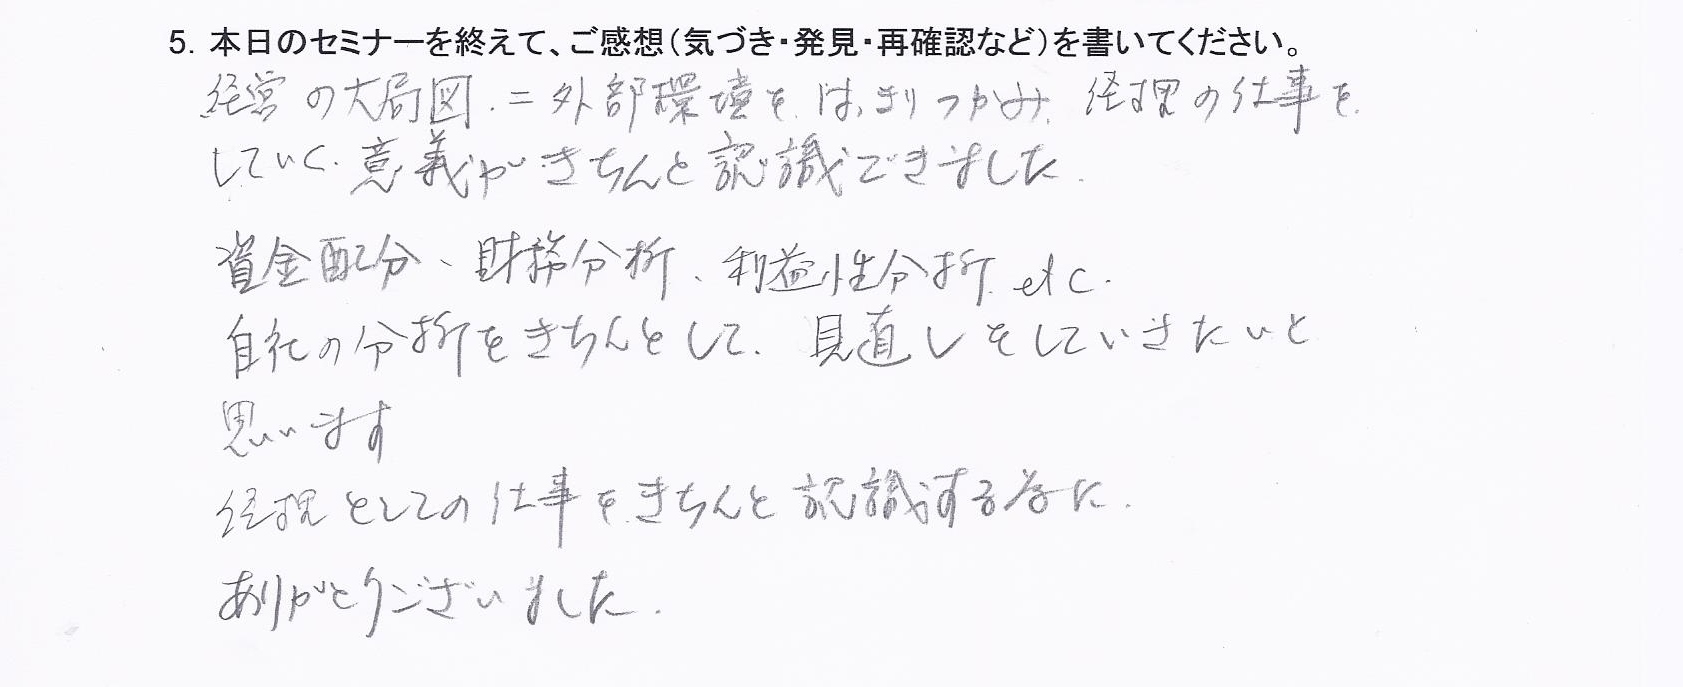 5. 本日のセミナーを終えて、ご感想（気づき・発見・再確認など）を書いてください。
経営の大局図.＝外部環境を、はっきりつかみ、経理の仕事を
していく、意義がきちんと認識できました.
資金配分、財務分析、利益性分析 etc.
自社の分析をきちんとして、見直しをしていきたいと
思います
経理としての仕事をきちんと認識する為に.
ありがとうございました.